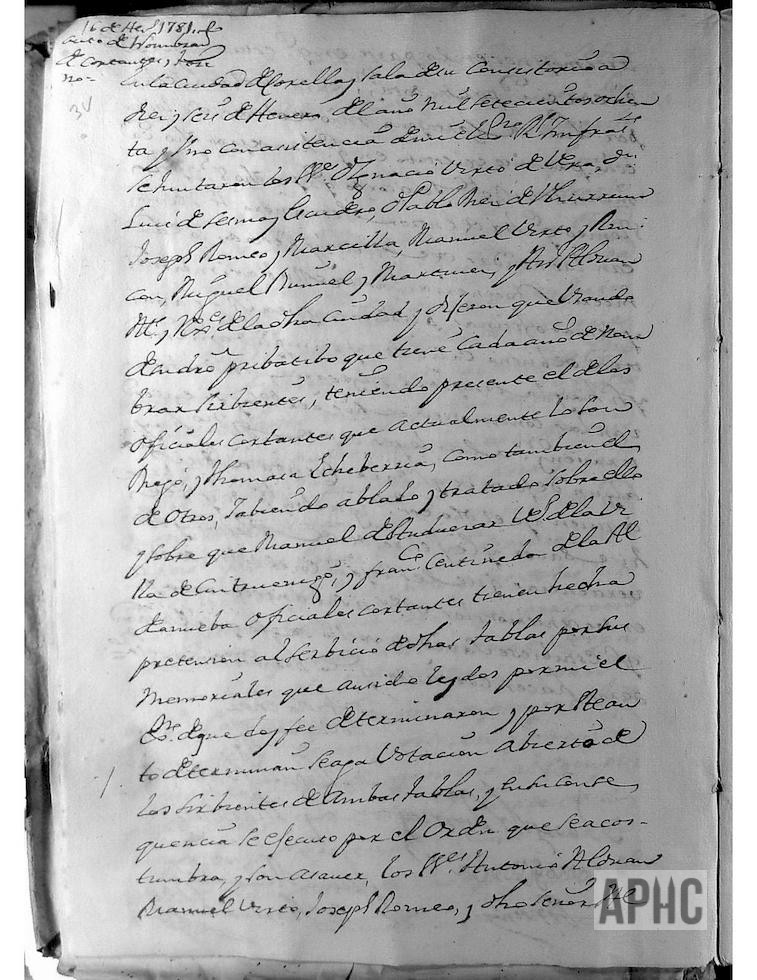 16 de Hen.º 1781.
auto de Nombran
de cortantes, y
no=
En la ciudad de Corella y sala de su Consistorio a
diez y seis de Henero, del año mil setecientos ochen
ta y uno con asistencia de mi el R.l Infras.to
se huntaron los SS.es D. Ignacio Virto de Vera, dn
Luis de sesma y Escudero, Pablo
Joseph Romeo y Marcilla, Manuel Virto y Rin
con, Miguel Buñuel y Martinez, y Ant.º Alonan
Al.e y R.es de la dha ciudad y dijeron que Usando
de su dro pribatibo que tiene Cada año de Nom
brar Sirbientes, teniendo presente el de los
oficiales cortantes que actualmente lo son
y thomasa Echeberria, como tambien el
de otros, Yabiendo ablado y tratado Sobre ello
y sobre que Manuel de V.º de la Vi
lla de Cintruenigo, y fran.co Centineda de la Al
danueba oficiales cortantes tienen hecha
pretension al serbicio de dhas tablas por sus
Memoriales que ansido leydos por mi el
Ess.no de que doy fee determinaron y por Ste au
to determinan Seaga Votacion Abierta de
los Sirbientes de Ambas tablas, y en su conse
quencia se ejecuto por el Orden que se acos-
tumbra, y son asauer, los SS.es Antonio Alonan
Manuel Virto, Joseph Romeo, y dho Señor Al
APHC